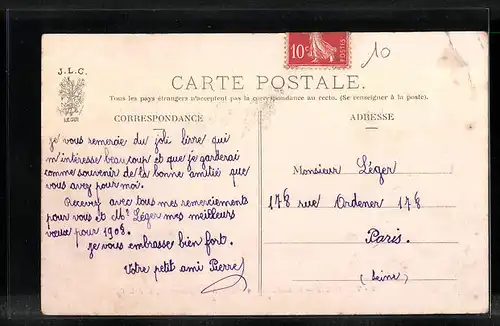 10c POSTES
10
J.L.C.
CARTE POSTALE.
Tous les pays étrangers n'acceptent pas la correspondance au recto. (Se renseigner à la poste.)
CORRESPONDANCE
Je vous remercie du joli livre qui
m'intéresse beaucoup et que je garderai
comme souvenir de la bonne amitié que
vous avez pour moi.
Recevez avec tous mes remerciements
pour vous et Mr Léger mes meilleurs
vœux pour 1908.
Je vous embrasse bien fort.
Votre petit ami Pierre
ADRESSE
Monsieur Léger
178 rue Ordener 178
Paris.
(Seine)